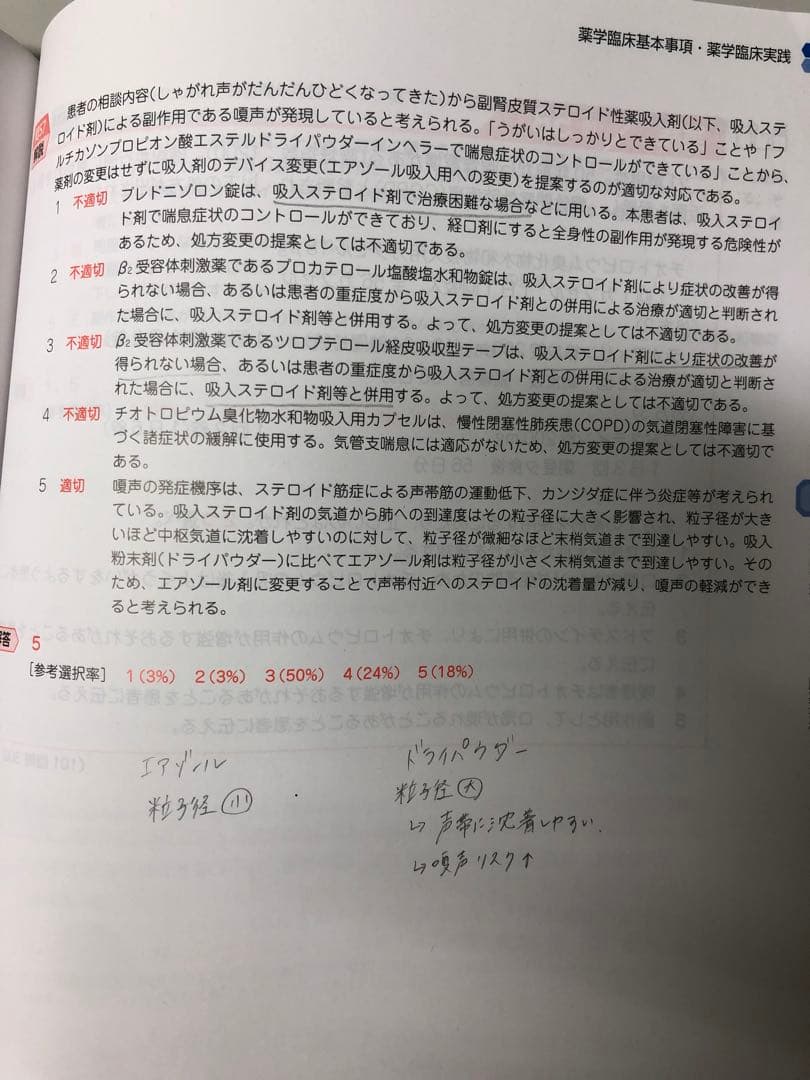 薬学臨床基本事項・薬学臨床実践
解説
患者の相談内容(しゃがれ声がだんだんひどくなってきた)から副腎皮質ステロイド性薬吸入剤(以下、吸入ステ
ロイド剤)による副作用である嗄声が発現していると考えられる。「うがいはしっかりとできている」ことや「フ
ルチカゾンプロピオン酸エステルドライパウダーインヘラーで喘息症状のコントロールができている」ことから、
薬剤の変更はせずに吸入剤のデバイス変更(エアゾール吸入用への変更)を提案するのが適切な対応である。
1 不適切 プレドニゾロン錠は、吸入ステロイド剤で治療困難な場合などに用いる。本患者は、吸入ステロイ
ド剤で喘息症状のコントロールができており、経口剤にすると全身性の副作用が発現する危険性が
あるため、処方変更の提案としては不適切である。
2 不適切 β2受容体刺激薬であるプロカテロール塩酸塩水和物錠は、吸入ステロイド剤により症状の改善が得
られない場合、あるいは患者の重症度から吸入ステロイド剤との併用による治療が適切と判断され
た場合に、吸入ステロイド剤等と併用する。よって、処方変更の提案としては不適切である。
3 不適切 β2受容体刺激薬であるツロブテロール経皮吸収型テープは、吸入ステロイド剤により症状の改善が
得られない場合、あるいは患者の重症度から吸入ステロイド剤との併用による治療が適切と判断さ
れた場合に、吸入ステロイド剤等と併用する。よって、処方変更の提案としては不適切である。
4 不適切 チオトロピウム臭化物水和物吸入用カプセルは、慢性閉塞性肺疾患(COPD)の気道閉塞性障害に基
づく諸症状の緩解に使用する。気管支喘息には適応がないため、処方変更の提案としては不適切で
ある。
5 適切 嗄声の発症機序は、ステロイド筋症による声帯筋の運動低下、カンジダ症に伴う炎症等が考えられ
ている。吸入ステロイド剤の気道から肺への到達度はその粒子径に大きく影響され、粒子径が大き
いほど中枢気道に沈着しやすいのに対して、粒子径が微細なほど末梢気道まで到達しやすい。吸入
粉末剤(ドライパウダー)に比べてエアゾール剤は粒子径が小さく末梢気道まで到達しやすい。その
ため、エアゾール剤に変更することで声帯付近へのステロイドの沈着量が減り、嗄声の軽減ができ
ると考えられる。
答 5
[参考選択率] 1(3%) 2(3%) 3(50%) 4(24%) 5(18%)
エアゾール
粒子径 小
ドライパウダー
粒子径 大
↳ 声帯に沈着しやすい.
↳ 嗄声リスク↑